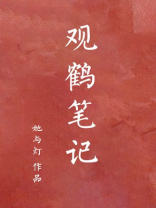 观鹤笔记
她与灯 作品